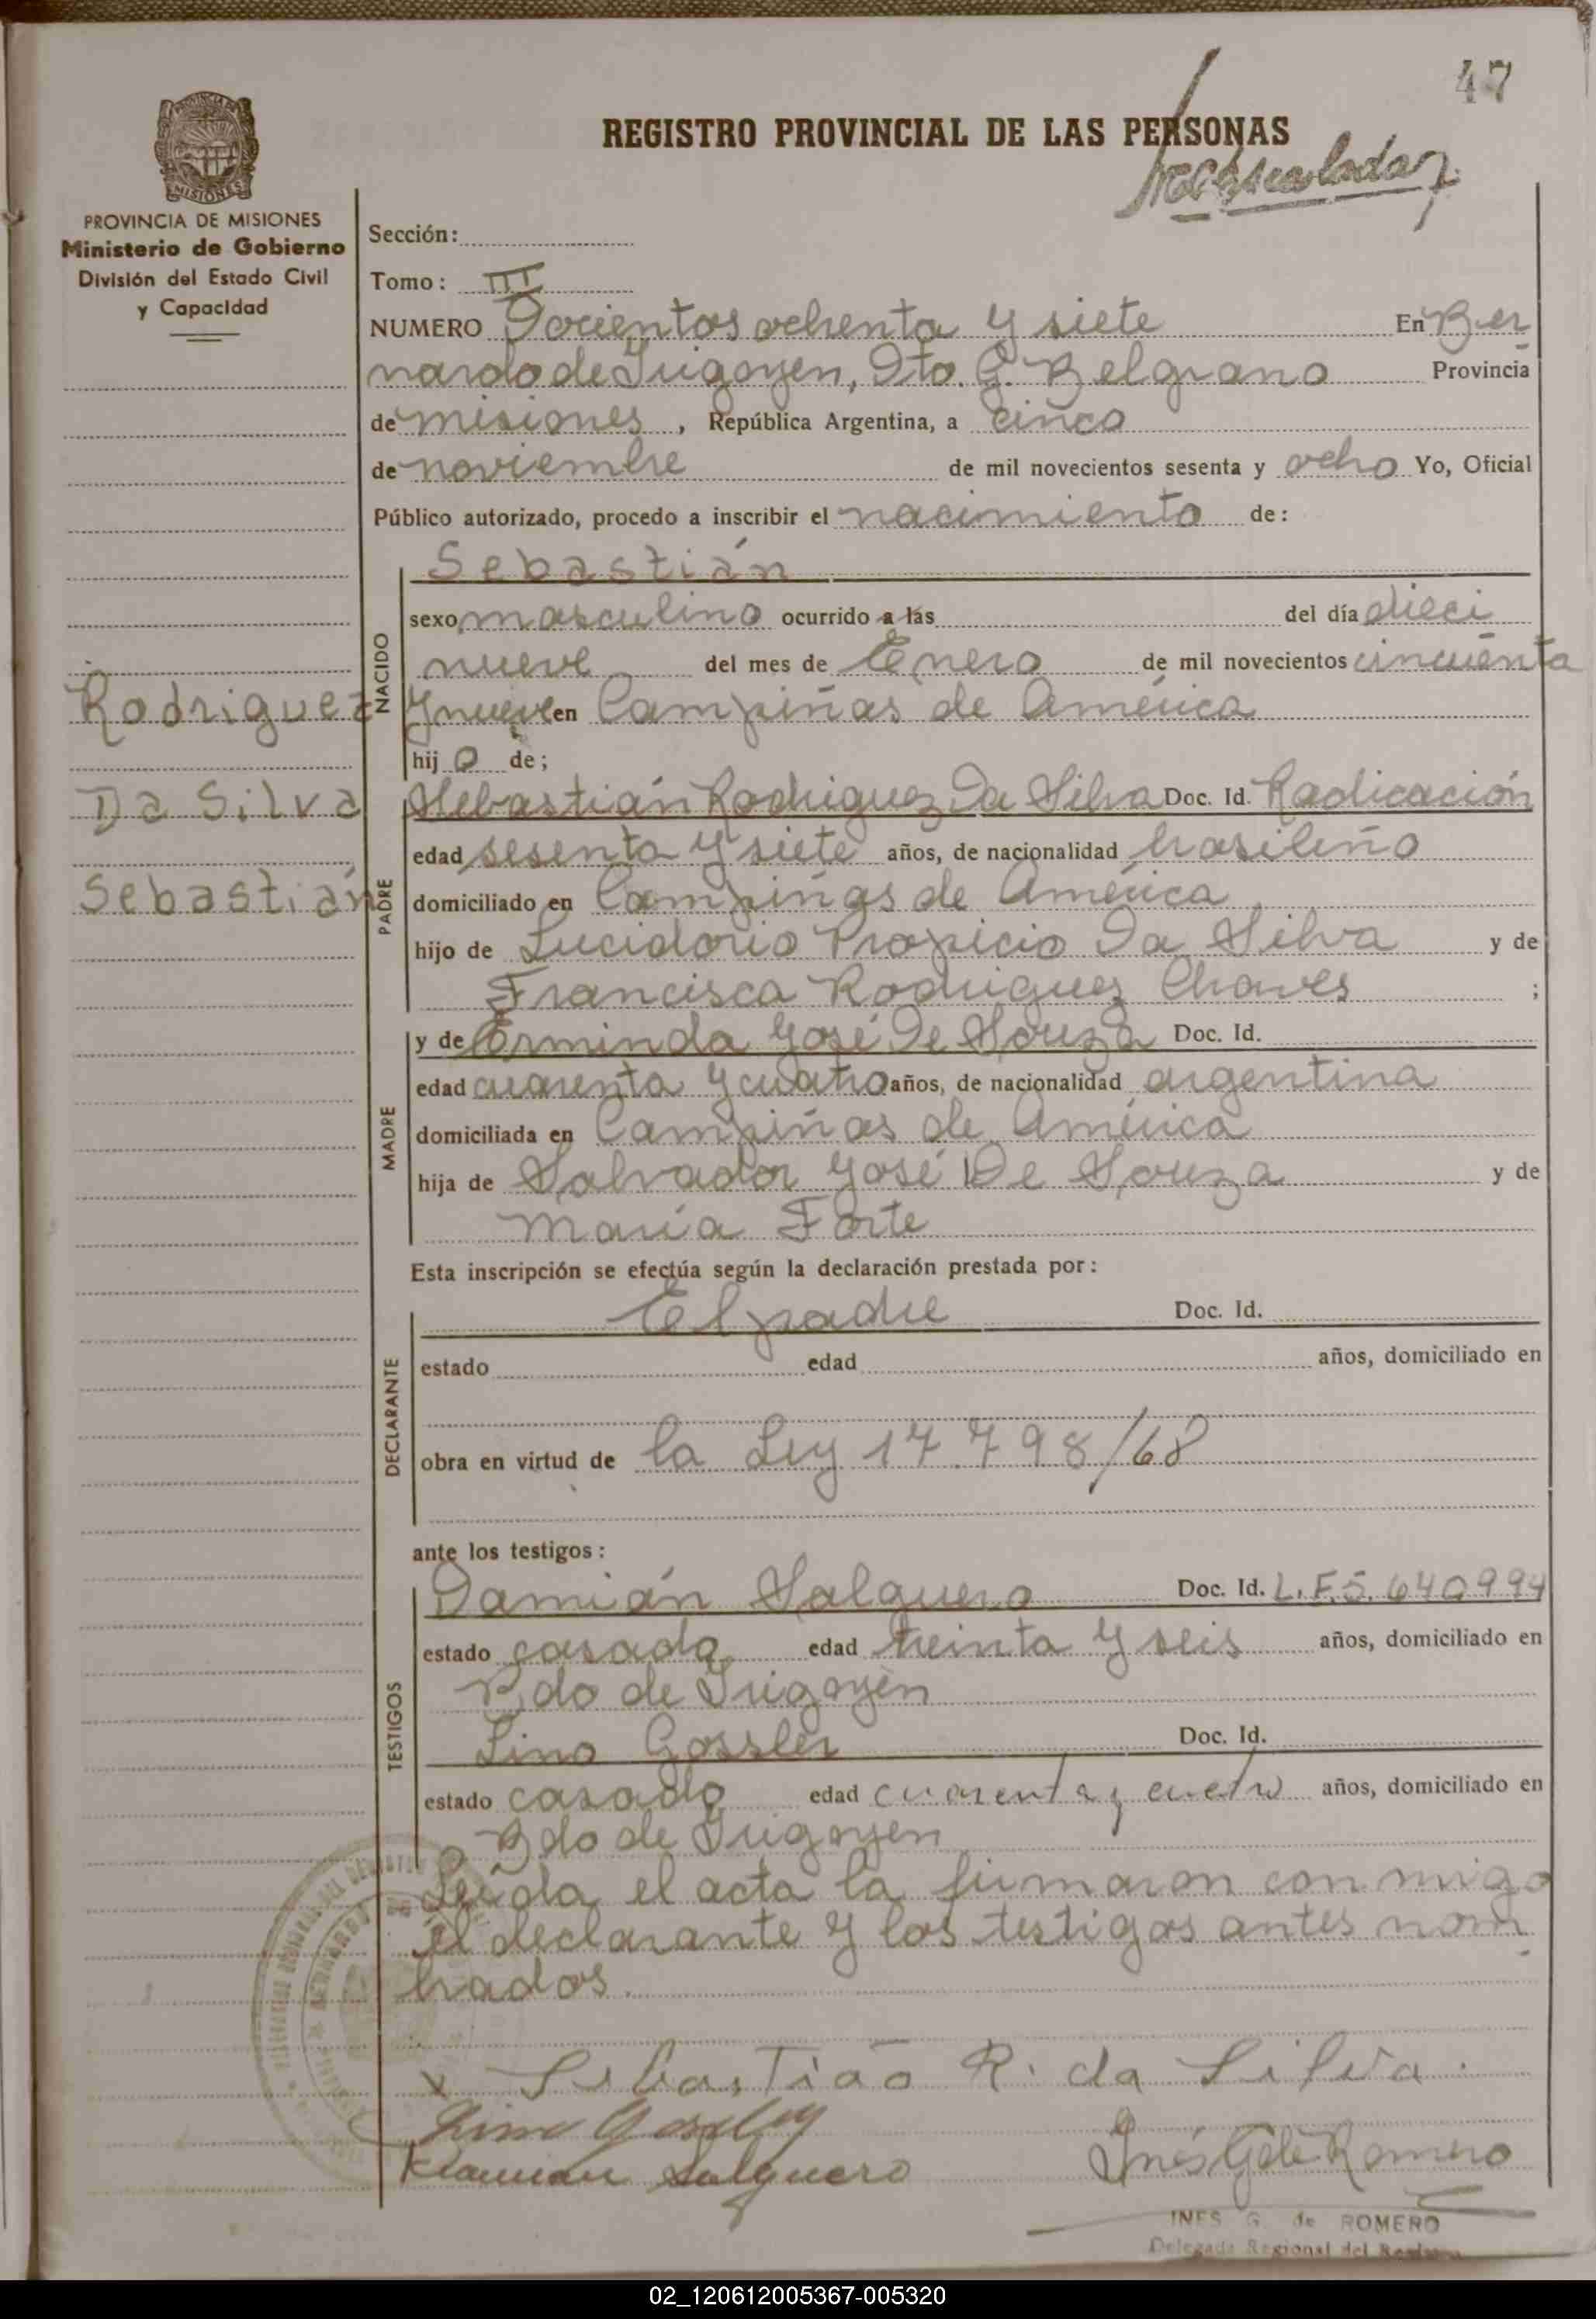 47
REGISTRO PROVINCIAL DE LAS PERSONAS
PROVINCIA DE MISIONES
Ministerio de Gobierno
División del Estado Civil
y Capacidad
Sección:
Tomo: III
NUMERO Docientos ochenta y siete En Ber
nardo de Irigoyen, Dto. G. Belgrano Provincia
de misiones, República Argentina, a cinco
de noviembre de mil novecientos sesenta y ocho Yo, Oficial
Público autorizado, procedo a inscribir el nacimiento de:
NACIDO
Sebastián
sexo masculino ocurrido a las del día dieci
nueve del mes de Enero de mil novecientos cincuenta
y nueve en Campiñas de América
hijo de;
Rodriguez
Da Silva
Sebastián
PADRE
Sebastián Rodriguez Da Silva Doc. Id. Radicación
edad sesenta y siete años, de nacionalidad brasileño
domiciliado en Campiñas de América
hijo de Lucidorio Propicio Da Silva y de
Francisca Rodriguez Chaves ;
MADRE
y de Erminda José De Souza Doc. Id.
edad cuarenta y cuatro años, de nacionalidad argentina
domiciliada en Campiñas de América
hija de Salvador José De Souza y de
María Forte
Esta inscripción se efectúa según la declaración prestada por:
DECLARANTE
El padre Doc. Id.
estado edad años, domiciliado en
obra en virtud de la Ley 17.798/68
ante los testigos:
TESTIGOS
Damián Salguero Doc. Id. L.E.5.640994
estado casado edad treinta y seis años, domiciliado en
Bdo de Irigoyen
Lino Gossler Doc. Id.
estado casado edad cuarenta y cuatro años, domiciliado en
Bdo de Irigoyen
Leída el acta la firmaron con migo
el declarante y los testigos antes nom
brados.
x Sebastião R. da Silva.
Lino Gossler
Damian Salguero
Inés G de Romero
INES G. de ROMERO
Delegada Regional del
02_120612005367-005320